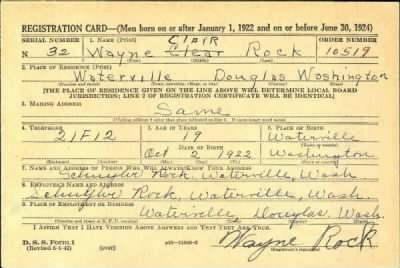 REGISTRATION CARD—(Men born on or after January 1, 1922 and on or before June 30, 1924)
SERIAL NUMBER 1. NAME (Print) CLAIR ORDER NUMBER
N 32 Wayne Clear Rock 10519
(First) (Middle) (Last)
2. PLACE OF RESIDENCE (Print)
Waterville Douglas Washington
(Number and street) (Town, township, village, or city) (County) (State)
[THE PLACE OF RESIDENCE GIVEN ON THE LINE ABOVE WILL DETERMINE LOCAL BOARD
JURISDICTION; LINE 2 OF REGISTRATION CERTIFICATE WILL BE IDENTICAL]
3. MAILING ADDRESS
Same
[Mailing address if other than place indicated on line 2. If same insert word same]
4. TELEPHONE 5. AGE IN YEARS 6. PLACE OF BIRTH
21F12 19 Waterville
DATE OF BIRTH (Town or county)
Oct 2 1922 Washington
(Exchange) (Number) (Mo.) (Day) (Yr.) (State or country)
7. NAME AND ADDRESS OF PERSON WHO WILL ALWAYS KNOW YOUR ADDRESS
Rock, Waterville, Wash
8. EMPLOYER'S NAME AND ADDRESS
Rock, Waterville, Wash.
9. PLACE OF EMPLOYMENT OR BUSINESS
Waterville, Douglas, Wash.
(Number and street or R. F. D. number) (Town) (County) (State)
I AFFIRM THAT I HAVE VERIFIED ABOVE ANSWERS AND THAT THEY ARE TRUE.
D. S. S. Form 1
(Revised 6-1-42) (over) Wayne Rock